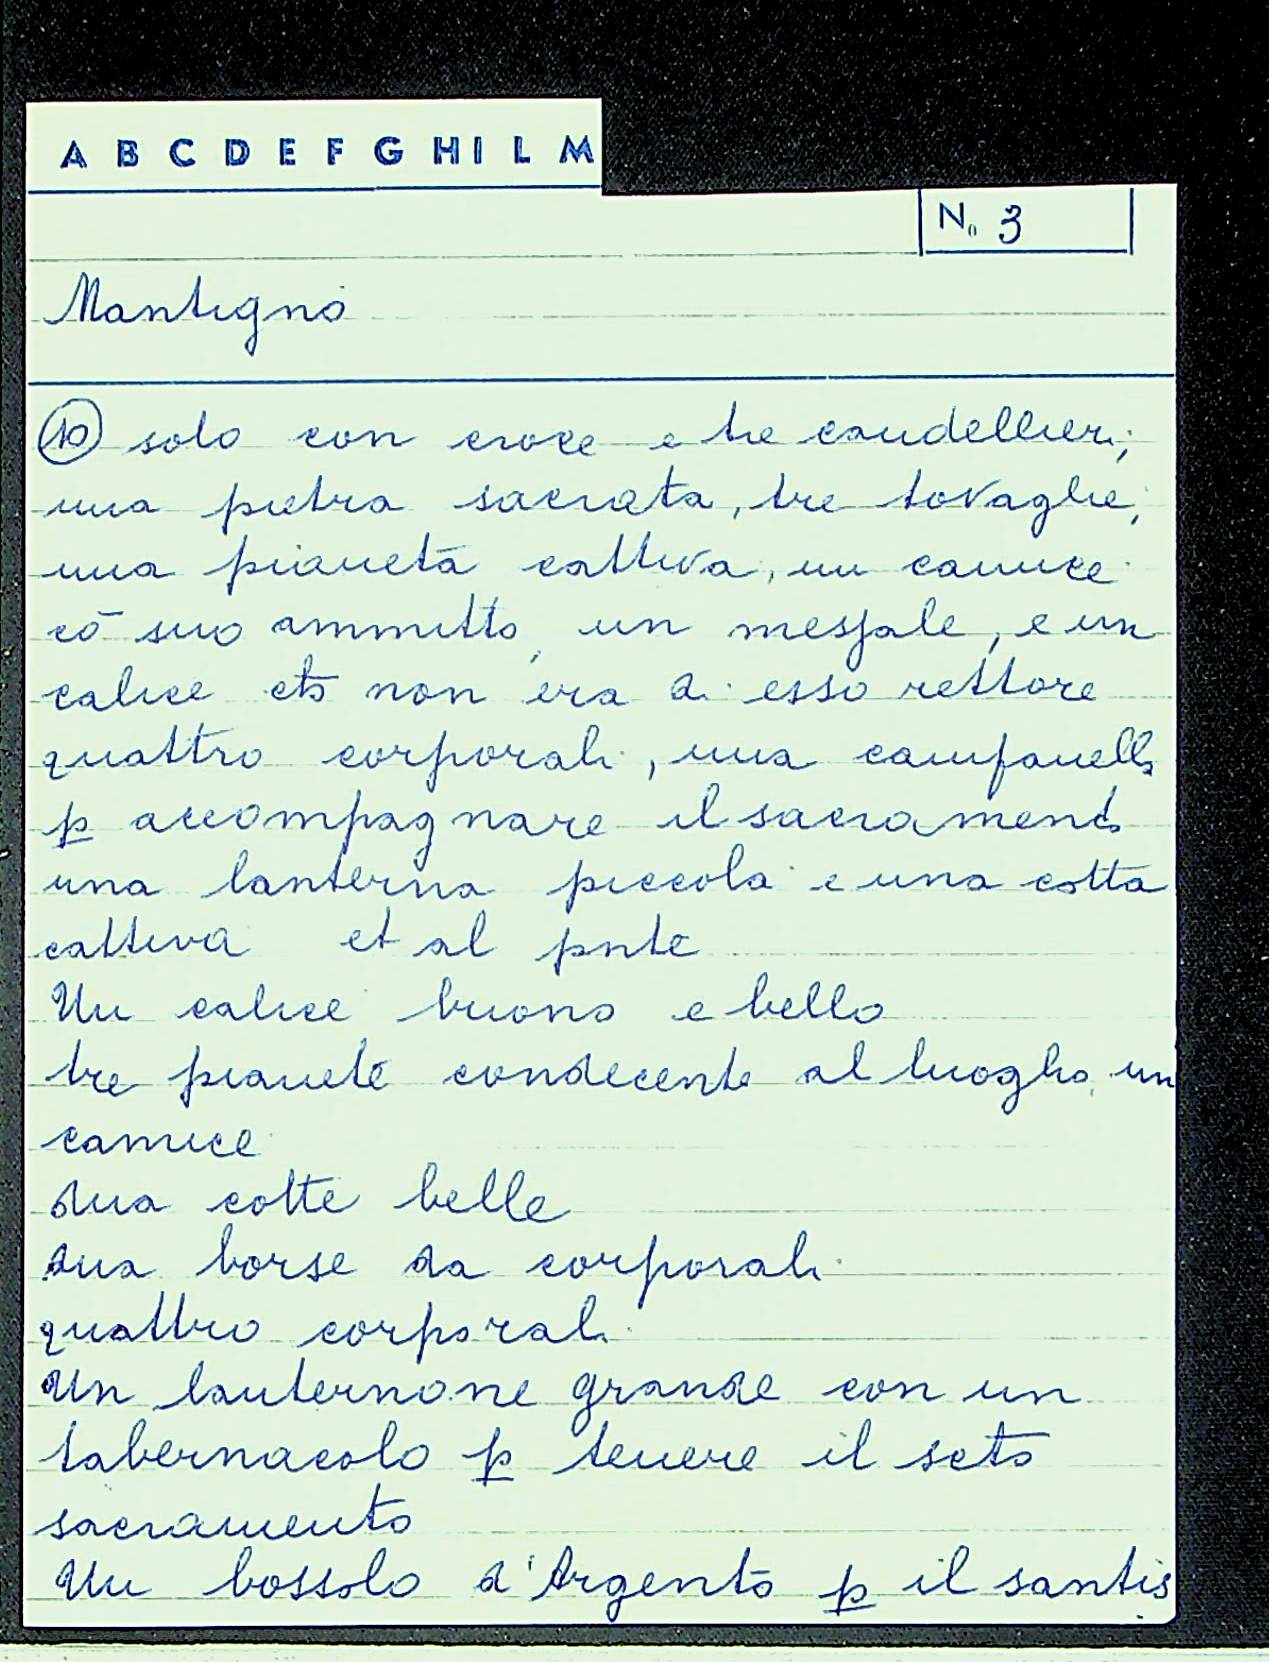 A B C D E F G H I L M
N. 3
Mantigno
10 solo con croce e tre candellieri;
una pietra sacrata, tre tovaglie;
una pianeta cattiva, un camice
cō suo ammitto, un messale, e un
calice et non era di esso rettore
quattro corporali, una campanella
p accompagnare il sacramento
una lanterna piccola e una cotta
cattiva et al pnte
Un calice buono e bello
tre pianete condecente al luogho, un
camice
dua cotte belle
dua borse da corporali
quattro corporali
Un lanternone grande con un
tabernacolo p tenere il scto
sacramento
Un bossolo d'Argento p il santis